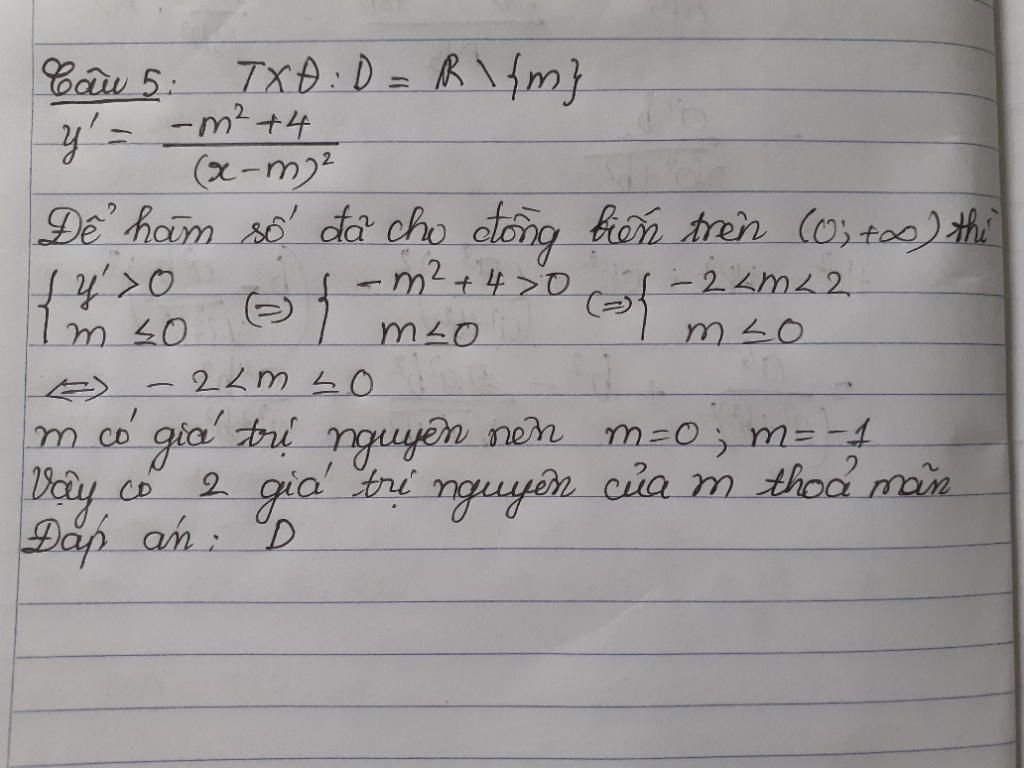 Câu 5: TXĐ: D = R \ {m}
y' = \frac{-m² + 4}{(x - m)²}
Để hàm số đã cho đồng biến trên (0; +∞) thì
{ y' > 0 (=) { -m² + 4 > 0 (=) { -2 < m < 2
m ≤ 0 m ≤ 0 m ≤ 0
<=> -2 < m ≤ 0
m có giá trị nguyên nên m = 0; m = -1
Vậy có 2 giá trị nguyên của m thoả mãn
Đáp án: D